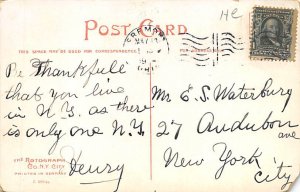 He
POST CARD
THIS SPACE MAY BE USED FOR CORRESPONDENCE
Be Thankfull
that you live
in N.Y. as there
is only one N.Y.
Henry
Mr E. S. Waterbury
27 Audubon
ave
New York
City
THE ROTOGRAPH
CO. N.Y. CITY
PRINTED IN GERMANY